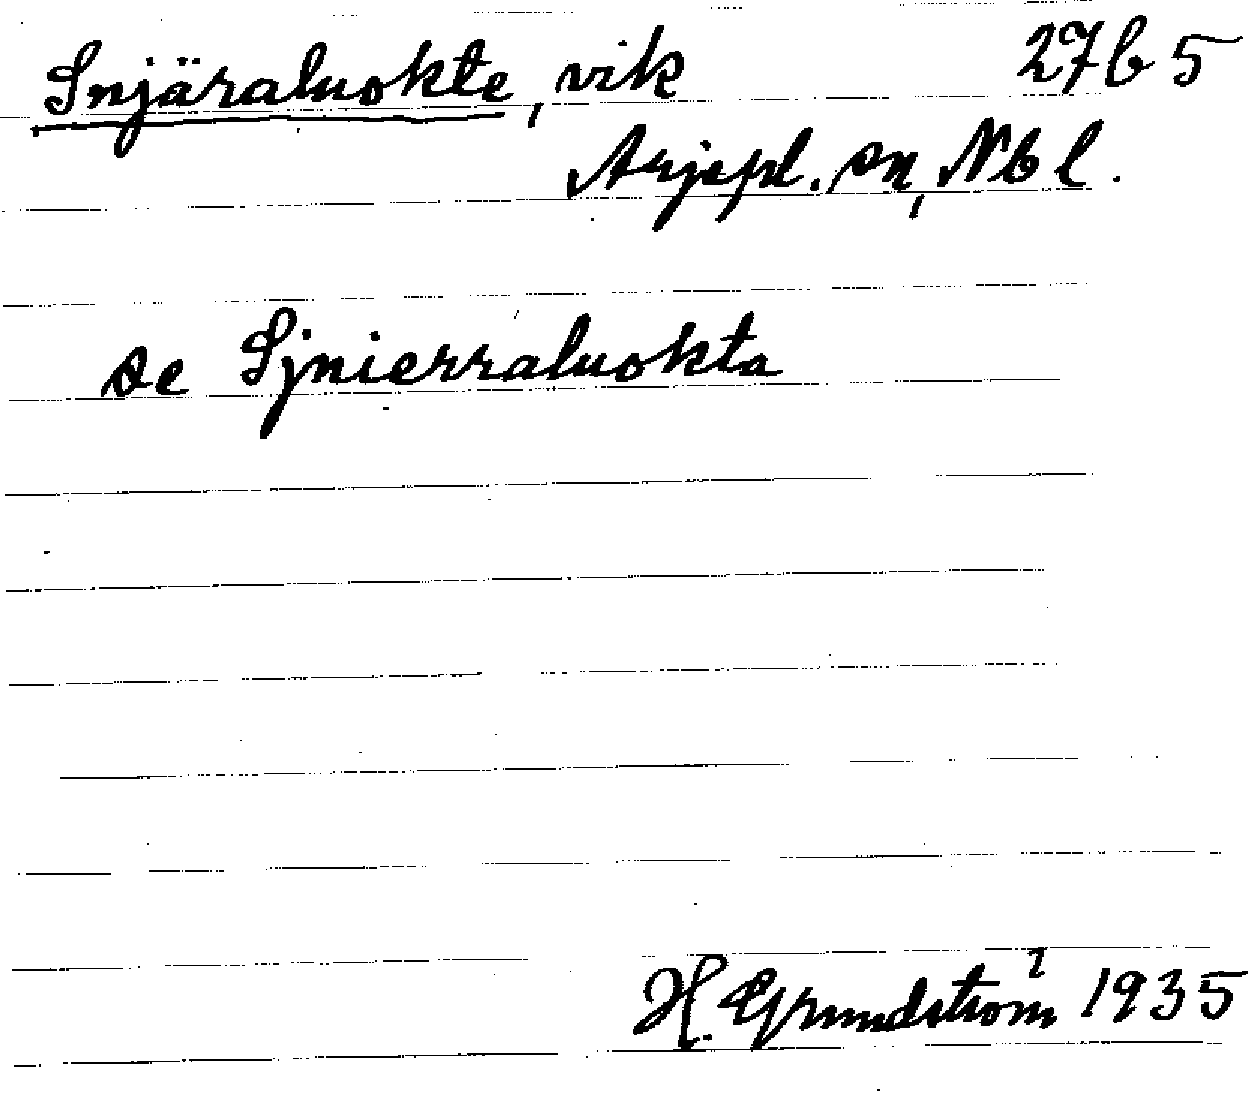 Snjäraluokte, vik 27b5
Arjepl. sn, Nbl.
se Sjnierraluokta
H. Grundström 1935